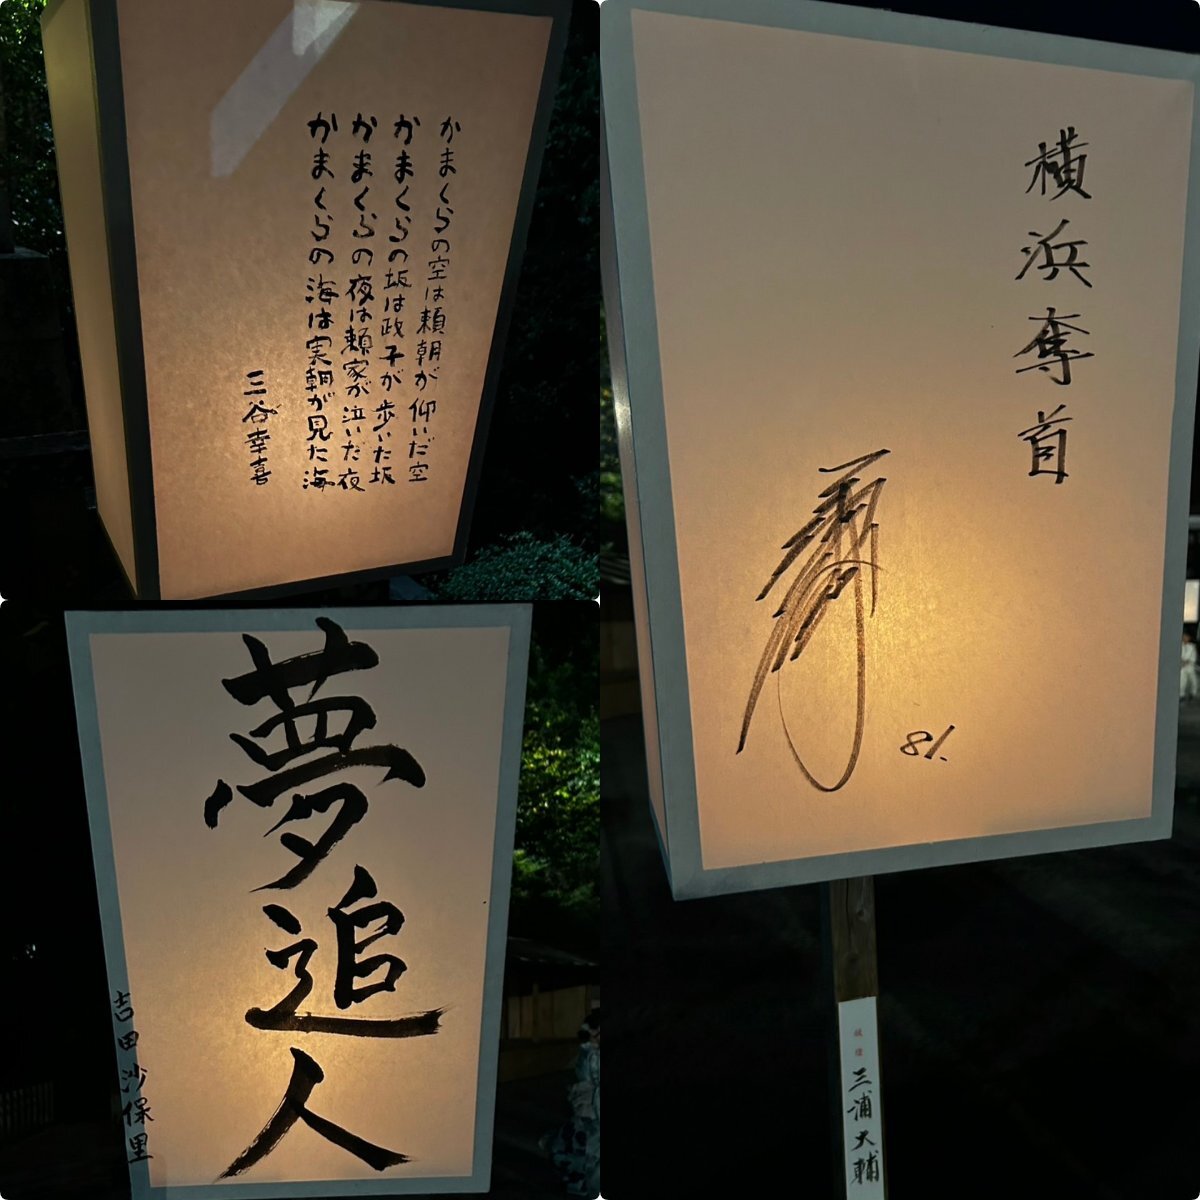 かまくらの空は頼朝が仰いだ空
かまくらの坂は政子が歩いた坂
かまくらの夜は頼家が泣いた夜
かまくらの海は実朝が見た海
三谷幸喜
夢追人
吉田沙保里
横浜奪首
81.
三浦大輔